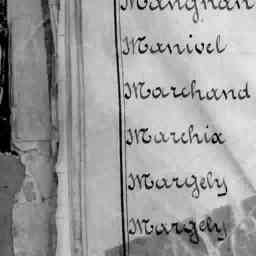 Mangnan
Manivel
Marchand
Marchix
Margely
Margely